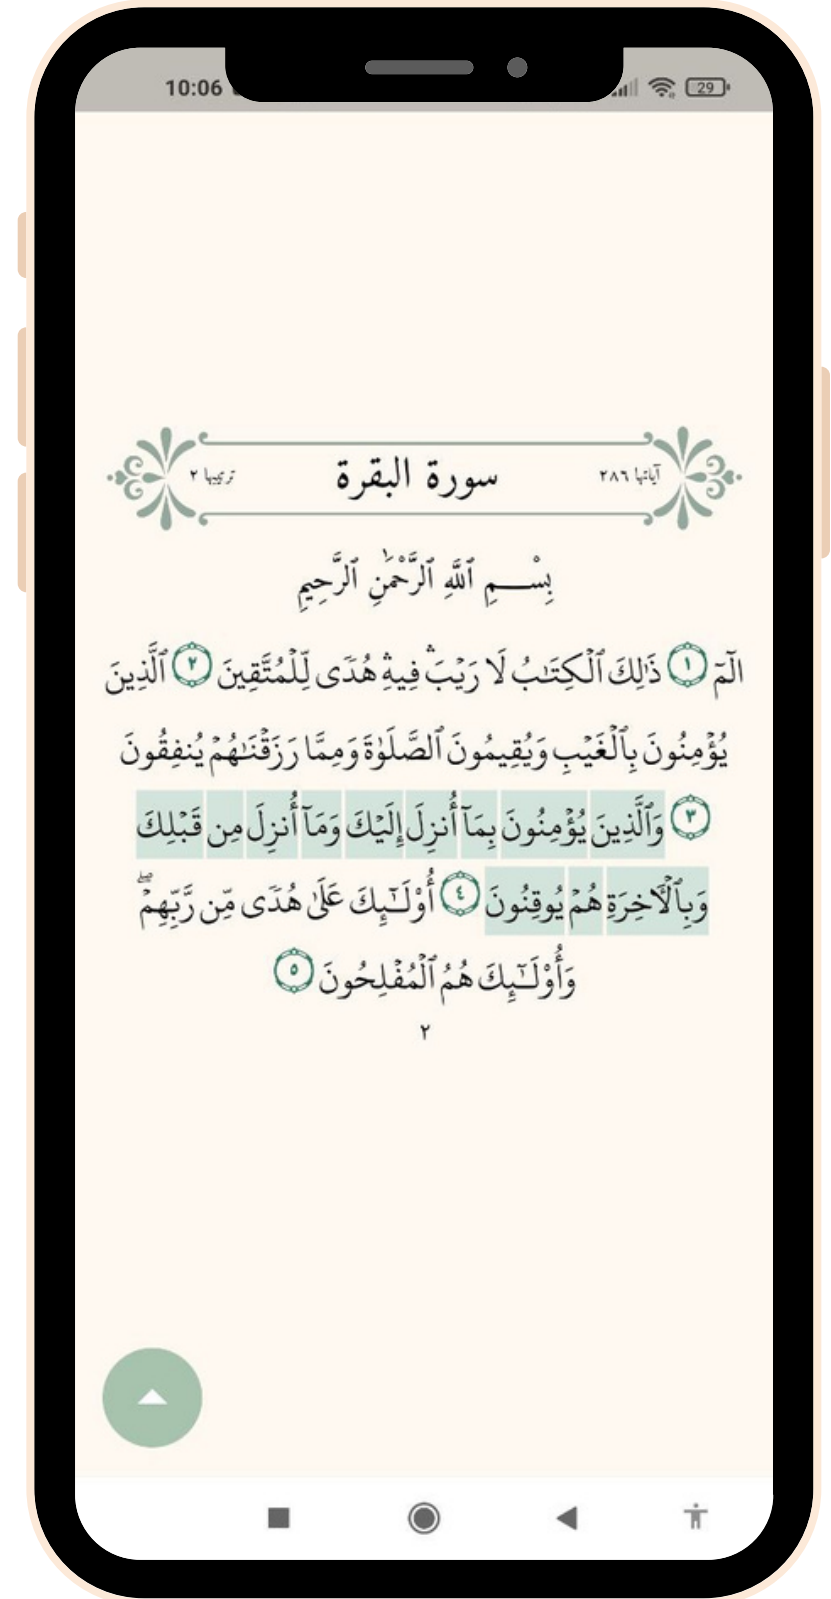 10:06
29
آياتها ٢٨٦ سورة البقرة ترتيبها ٢
بِسْــمِ ٱللَّهِ ٱلرَّحْمَٰنِ ٱلرَّحِيمِ
الٓمٓ ١ ذَٰلِكَ ٱلْكِتَٰبُ لَا رَيْبَ ۛ فِيهِ ۛ هُدًى لِّلْمُتَّقِينَ ٢ ٱلَّذِينَ
يُؤْمِنُونَ بِٱلْغَيْبِ وَيُقِيمُونَ ٱلصَّلَوٰةَ وَمِمَّا رَزَقْنَٰهُمْ يُنفِقُونَ
٣ وَٱلَّذِينَ يُؤْمِنُونَ بِمَآ أُنزِلَ إِلَيْكَ وَمَآ أُنزِلَ مِن قَبْلِكَ
وَبِٱلْأَخِرَةِ هُمْ يُوقِنُونَ ٤ أُوْلَٰٓئِكَ عَلَىٰ هُدًى مِّن رَّبِّهِمْ ۖ
وَأُوْلَٰٓئِكَ هُمُ ٱلْمُفْلِحُونَ ٥
٢